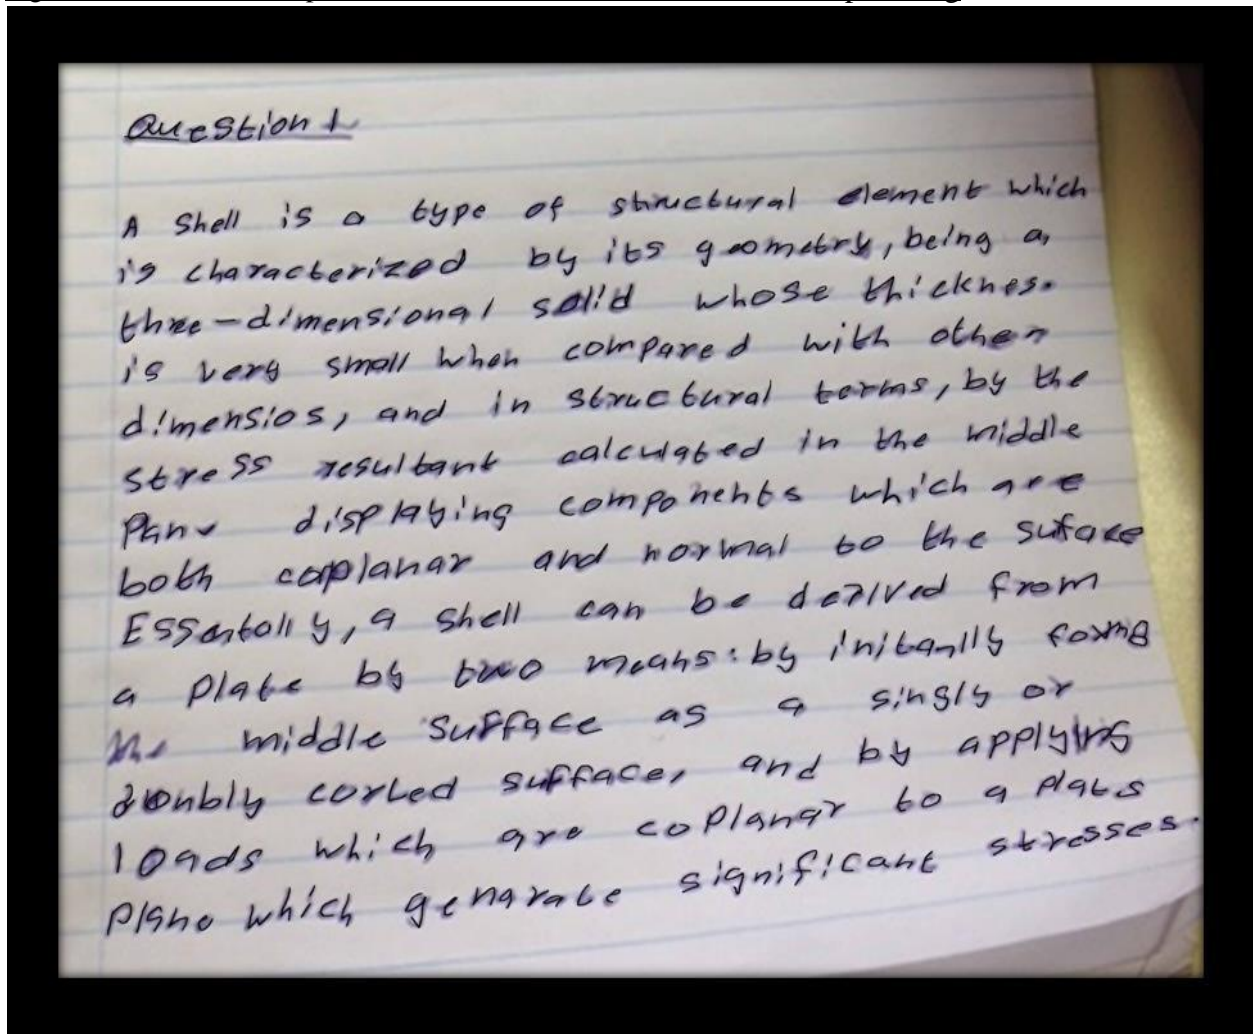 Question 1
A Shell is a type of structural element which
is characterized by its geometry, being a
three-dimensional solid whose thicknes.
is very small when compared with other
dimensios, and in structural terms, by the
stress resultant calculated in the middle
Plane displaying components which are
both coplanar and normal to the suface
Essentally, a shell can be derived from
a plate by two means: by initanlly forming
the middle surface as a singly or
doubly corved surface, and by applying
loads which are coplanar to a plates
plane which genarate significant stresses.